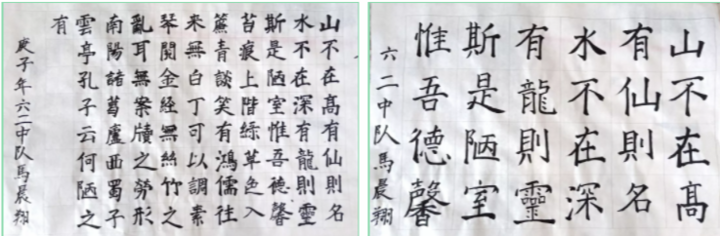 山不在髙有仙則名
水不在深有龍則靈
斯是陋室惟吾德馨
苔痕上階綠草色入
簾青談笑有鴻儒往
来無白丁可以調素
琴閱金經無絲竹之
亂耳無案牘之勞形
南陽諸葛廬西蜀子
雲亭孔子云何陋之
有
庚子年六二中队馬晨翔
山不在髙
有仙則名
水不在深
有龍則靈
斯是陋室
惟吾德馨
六二中队馬晨翔